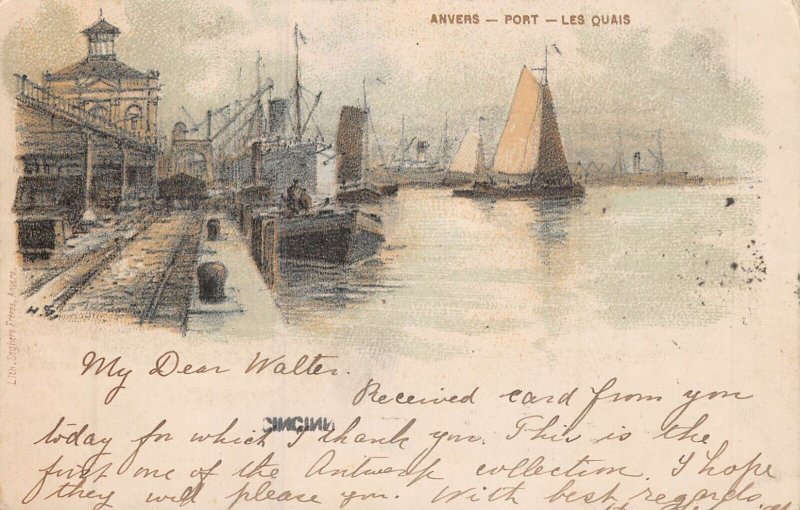 ANVERS — PORT — LES QUAIS
Lith. Seghers Frères, Anvers.
H. S.
My Dear Walter.
Received card from you
today for which I thank you. This is the
first one of the Antwerp collection. I hope
they will please you. With best regards
CINCINN